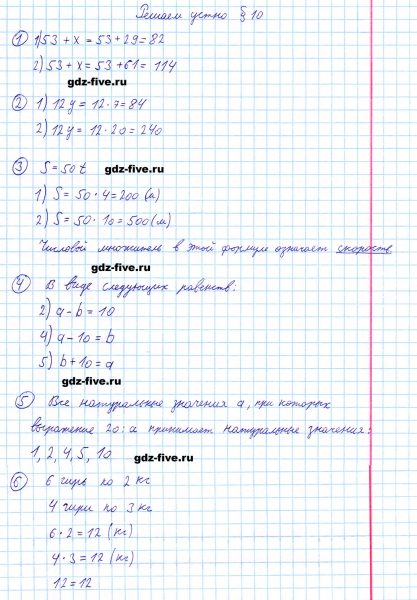 Решаем устно § 10
① 1) 53 + x = 53 + 29 = 82
2) 53 + x = 53 + 61 = 114
gdz-five.ru
② 1) 12y = 12 · 7 = 84
gdz-five.ru
2) 12y = 12 · 20 = 240
③ S = 50t gdz-five.ru
1) S = 50 · 4 = 200 (м)
2) S = 50 · 10 = 500 (м)
Числовой множитель в этой формуле означает скорость
gdz-five.ru
④ В виде следующих равенств:
2) a - b = 10
4) a - 10 = b
5) b + 10 = a
gdz-five.ru
⑤ Все натуральные значения a, при которых
выражение 20 : a принимает натуральные значения:
1, 2, 4, 5, 10 gdz-five.ru
⑥ 6 гирь по 2 кг
4 гири по 3 кг
6 · 2 = 12 (кг)
4 · 3 = 12 (кг)
12 = 12